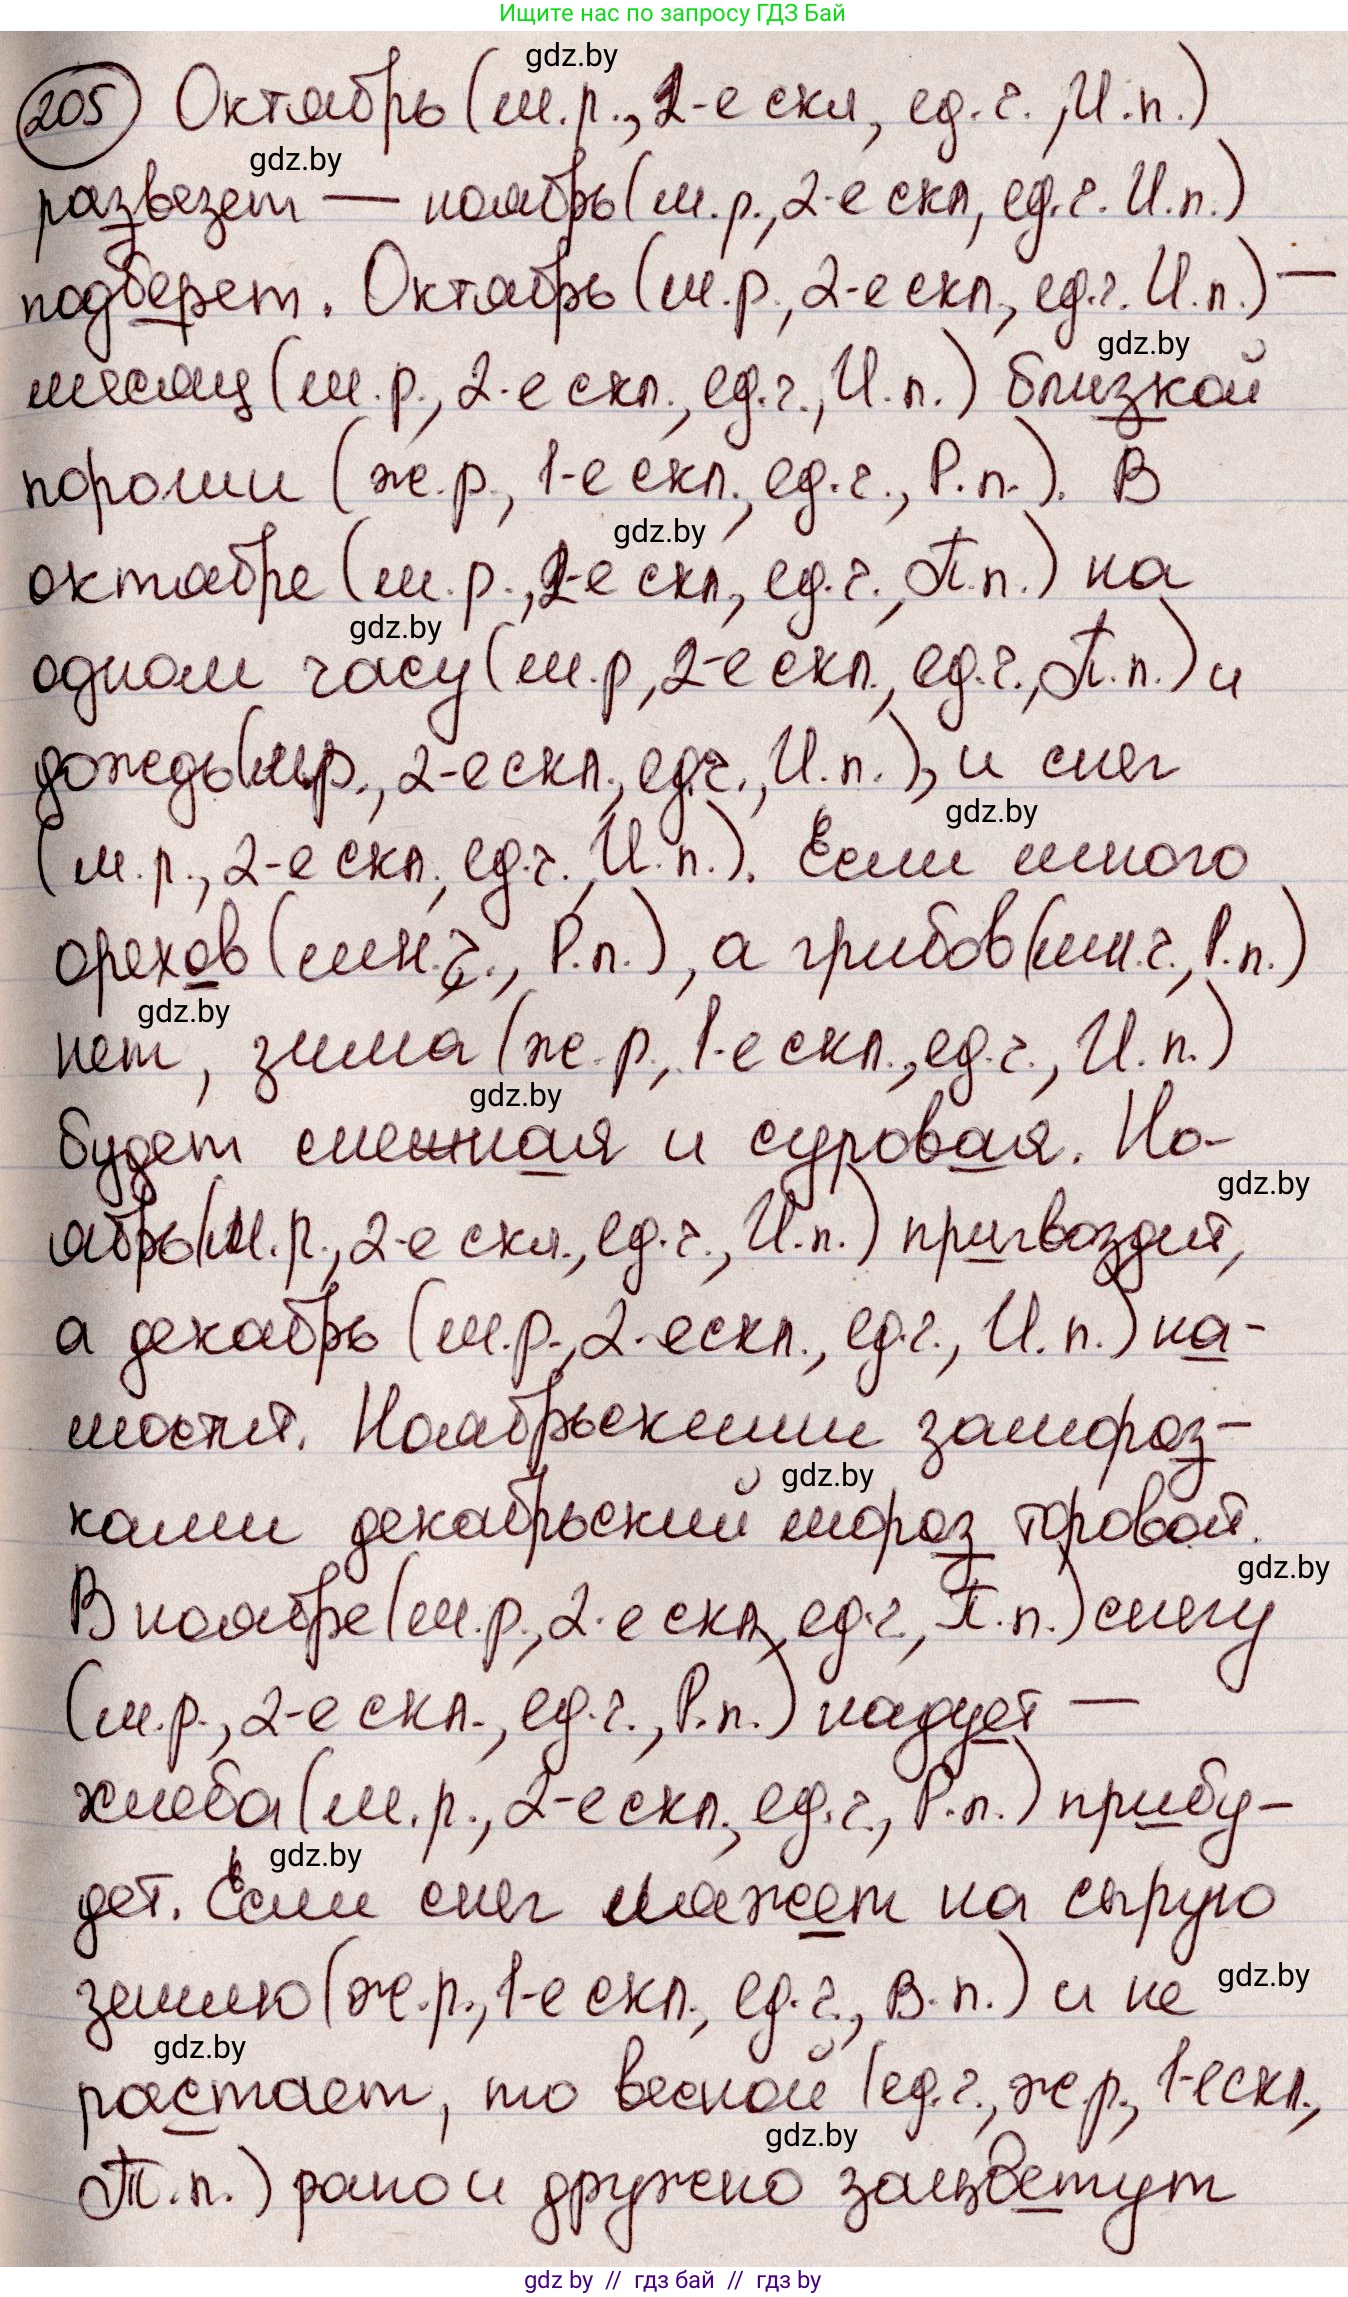 Ищите нас по запросу ГДЗ Бай
gdz.by
205 Октябрь (м.р., 2-е скл, ед.ч., И.п.)
gdz.by
развезет — ноябрь (м.р., 2-е скл, ед.ч. И.п.)
подберет. Октябрь (м.р., 2-е скл., ед.ч. И.п.) —
gdz.by
месяц (м.р., 2-е скл., ед.ч., И.п.) близкой
пороши (ж.р., 1-е скл., ед.ч., Р.п.). В
gdz.by
октябре (м.р., 2-е скл., ед.ч., П.п.) на
gdz.by
одном часу (м.р, 2-е скл., ед.ч., П.п.) и
дождь (м.р., 2-е скл., ед.ч., И.п.), и снег
gdz.by
(м.р., 2-е скл., ед.ч., И.п.). Если много
орехов (мн.ч., Р.п.), а грибов (мн.ч., Р.п.)
gdz.by
нет, зима (ж.р., 1-е скл., ед.ч., И.п.)
gdz.by
будет снежная и суровая. Но-
gdz.by
ябрь (м.р., 2-е скл., ед.ч., И.п.) пригвоздит,
а декабрь (м.р., 2-е скл., ед.ч., И.п.) на-
мостит. Ноябрьскими замороз-
gdz.by
ками декабрьский мороз торовит.
gdz.by
В ноябре (м.р., 2-е скл., ед.ч., П.п.) снегу
(м.р., 2-е скл., ед.ч., Р.п.) надует —
хлеба (м.р., 2-е скл., ед.ч., Р.п.) прибу-
gdz.by
дет. Если снег ляжет на сырую
gdz.by
землю (ж.р., 1-е скл., ед.ч., В.п.) и не
gdz.by
растает, то весной (ед.ч., ж.р., 1-е скл.,
gdz.by
Т.п.) рано и дружно зацветут
gdz by // гдз бай // гдз by